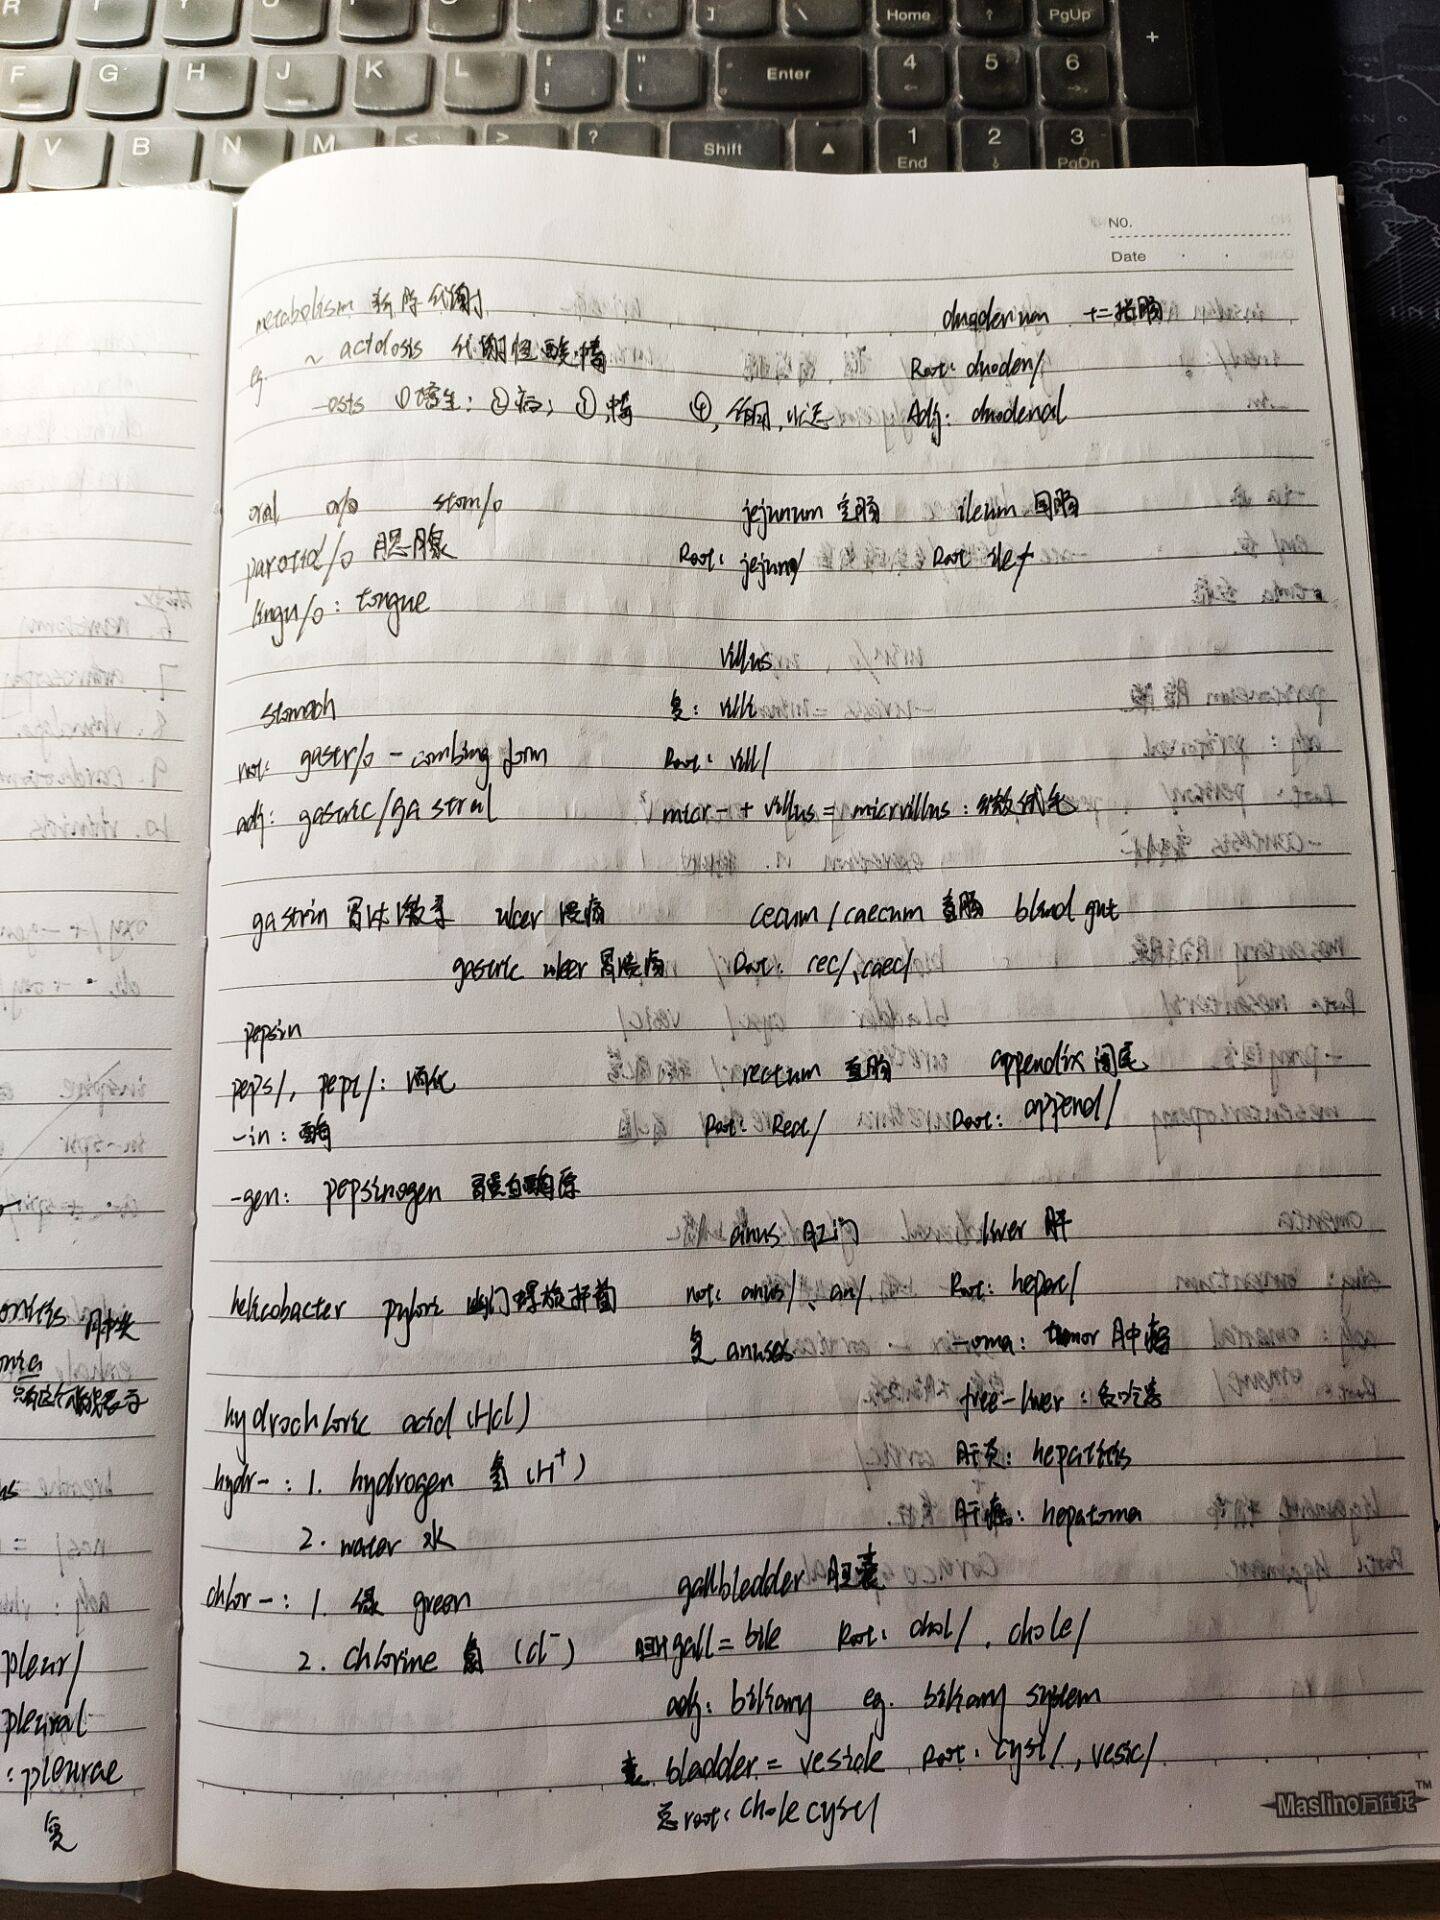 R T
[ ] \ Home ↑ PgUp +
F G H J K L : ; " ' Enter 4 ← 5 6 →
V B N M < > ? Shift ▲ 1 End 2 ↓ 3 PgDn
NO.
Date
metabolism 新陈代谢
eg. ~ acidosis 代谢性酸中毒
-osis ①增生; ②病;
oral or/o stom/o
parotid/o 腮腺
lingu/o : tongue
stomach
root: gastr/o - combing form
adj: gastric/gastral
gastrin 胃泌激素 ulcer 溃疡
gastric ulcer 胃溃疡
pepsin
peps/, pept/: 消化
-in : 酶
-gen: pepsinogen 胃蛋白酶原
helicobacter pylori 幽门螺旋杆菌
hydrochloric acid (Hcl)
hydr- : 1. hydrogen 氢 (H⁺)
2. water 水
chlor-: 1. 绿 green
2. chlorine 氯 (cl⁻)
duodenum 十二指肠
Root: duoden/
Adj: duodenal
jejunum 空肠 ileum 回肠
Root: jejun/ Root: ile/
villus
复: villi
Root: vill/
micr- + villus = micrvillus : 微绒毛
cecum / caecum 盲肠 blind gut
Root: cec/, caec/
rectum 直肠 appendix 阑尾
Root: Rect/ Root: append/
anus 肛门 liver 肝
root: anus/、an/ Root: hepat/
复 anuses -oma: tumor 肿瘤
free-liver :
肝炎: hepatitis
肝癌: hepatoma
gallbladder 胆囊
胆汁 gall = bile Root: chol/ , chole/
adj: biliary eg. biliary system
囊 bladder = vesicle Root: cyst/ , vesic/
总root: cholecyst/
Maslino万仕龙™
pleur/
pleural
: pleurae
复